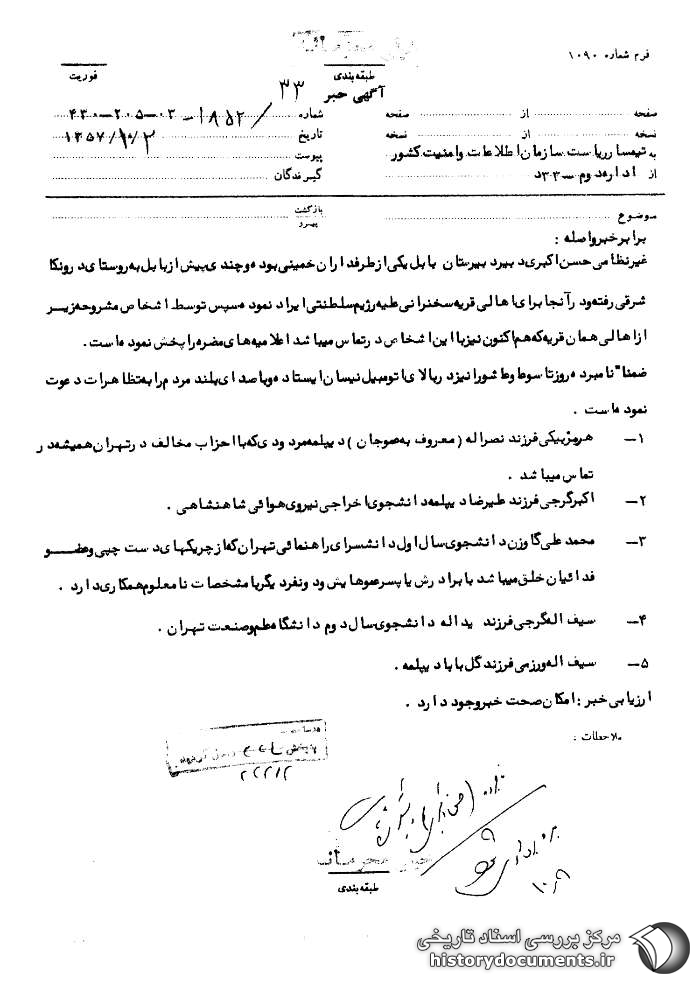 فرم شماره ۱۰۹۰
طبقه‌بندی
فوریت
آگهی خبر ۳۳
صفحه از صفحه شماره ۱۹۵۲/-۰۳-۲۰۵-۴۳۰
نسخه از نسخه تاریخ ۱۳۵۷/۱۰/۲
به تیمسار ریاست سازمان اطلاعات و امنیت کشور پیوست
از اداره دوم -۳۳ د گیرندگان
موضوع بازگشت پیرو
برابر خبر واصله :
غیرنظامی حسن اکبری دبیر دبیرستان بابل یکی از طرفداران خمینی بوده و چندی پیش از بابل به روستای درونکا
شرقی رفته و در آنجا برای اهالی قریه سخنرانی علیه رژیم سلطنتی ایراد نموده سپس توسط اشخاص مشروحه زیر
از اهالی همان قریه که هم اکنون نیز با این اشخاص در تماس میباشد اعلامیه های مضره را پخش نموده است .
ضمنا" نامبرده روز تاسوعا و عاشورا نیز در بالای اتومبیل نیسان ایستاده و با صدای بلند مردم را به تظاهرات دعوت
نموده است .
۱- هرمز بیکی فرزند نصراله ( معروف به عموجان ) دیپلمه مردودی که با احزاب مخالف در تهران همیشه در
تماس میباشد .
۲- اکبر گرجی فرزند علیرضا دیپلمه دانشجوی اخراجی نیروی هوائی شاهنشاهی .
۳- محمد علی گاوزن دانشجوی سال اول دانشسرای راهنمائی تهران که از چریکهای دست چپی و عضو
فدائیان خلق میباشد با برادرش یا پسرعموهایش و دو نفر دیگر با مشخصات نامعلوم همکاری دارد .
۴- سیف اله گرجی فرزند یداله دانشجوی سال دوم دانشگاه علم و صنعت تهران .
۵- سیف اله ورزمی فرزند گل بابا دیپلمه .
ارزیابی خبر : امکان صحت خبر وجود دارد .
ملاحظات :
طبقه‌بندی
مرکز بررسی اسناد تاریخی
historydocuments.ir